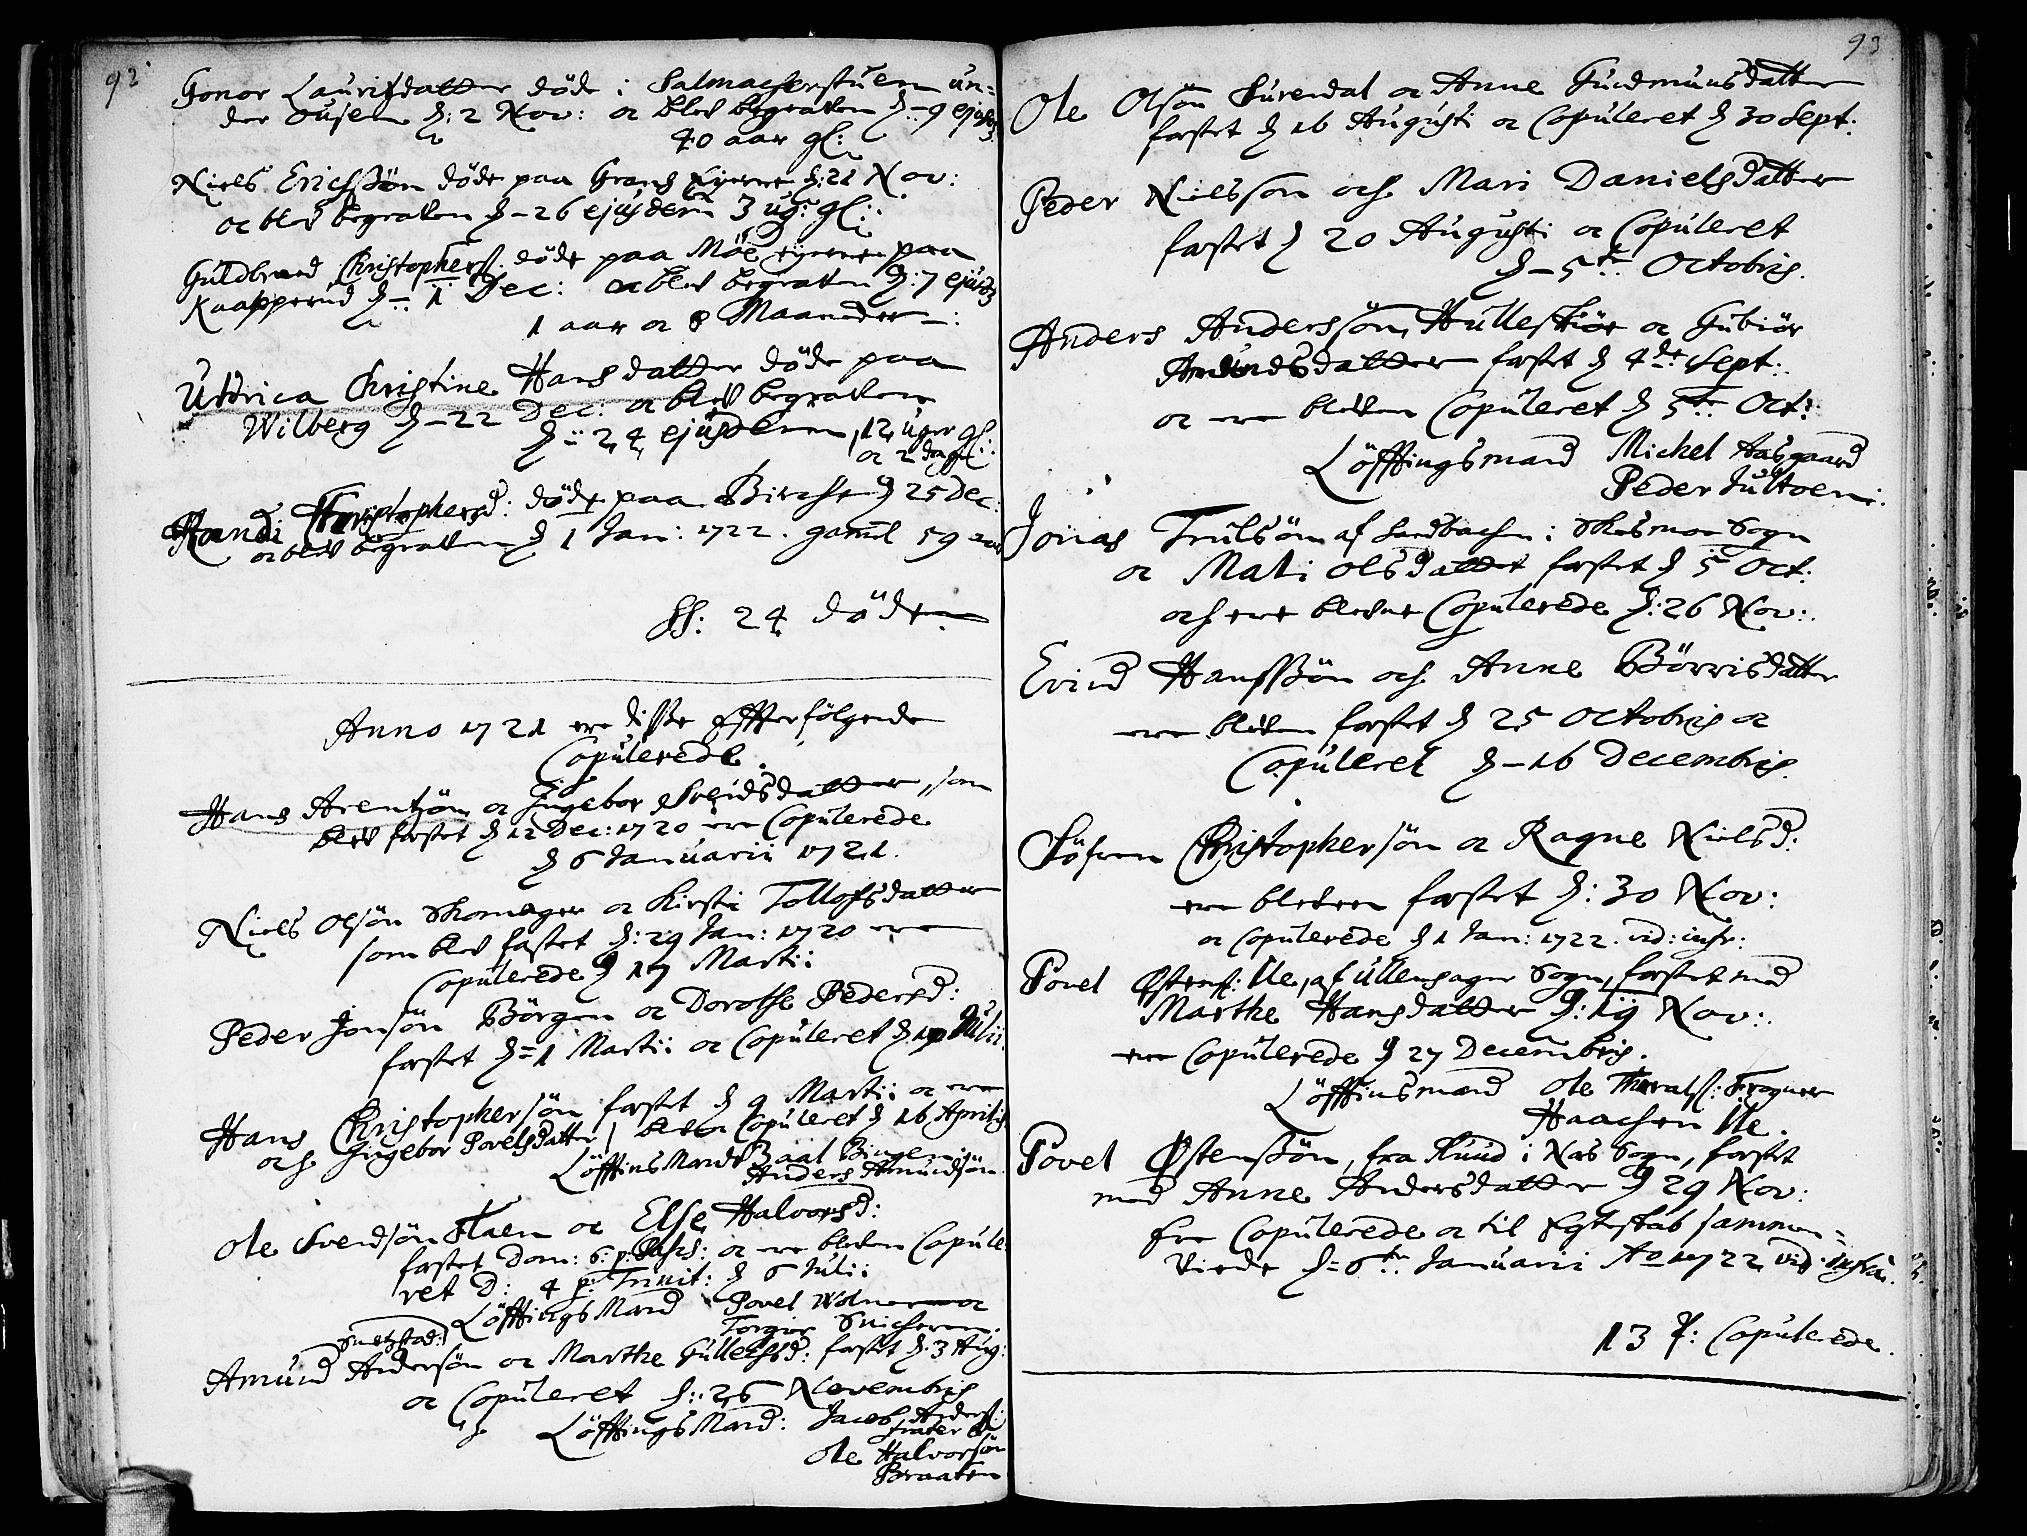 93
Gonor Lauritzdatter döde i Salmacherstuen un-
der Ousen d: 2 Nov: oc blef begraven d: 9 ejusd:
40 aar gl:
Niels Erichssön döde paa Grans Eyerne d: 21 Nov:
oc blef begraven d - 26 ejusdem 3 ug: gl:
Guldbrand Christophers: döde paa Moe eyerne paa
Kaapperud d - 1 Dec: oc blef begraven d: 7 ejusd
1 aar oc 8 Maaneder
Uldrica Christine Hansdatter döde paa
Wilberg d - 22 Dec: oc blef begraven
d: 24 ejusdem, 12 uger gl:
oc 2 dage
Randi Christophersd: döde paa Birche d 25 Dec:
oc blef begraven d 1 Jan: 1722. gaml 59 aar
ss: 24 döde
Anno 1721 ere disse Effterfölgende
Copulerede.
Hans Arentzön oc Ingebor datter, som
blef fæstet d 12 Dec: 1720 ere Copulerede
d 6 Januarii 1721.
Niels Olsön Skomager oc Kirsti Tollofsdatter
som blef fæstet d: 29 Jan: 1720 ere
Copulerede d 17 Martii
Peder Jonsön Börgen oc Dorothe Pedersd:
fæstet d = 1 Martii oc Copuleret d Julii
Hans Christophersön fæstet d 9 Martii oc ere
och Ingebor Povelsdatter bleven Copuleret d 16 Aprilis
Löfftins Mænd Baal Bingen
Anders Amundsön
Ole Svendsön oc Else Halvorsd:
fæstet Dom: 6: p: oc ere bleven Copule-
ret D: 4 p: Trinit: d 6 Julii
Löfftings Mænd Povel Wolner oc
Torgior Snicheren.
Amund Andersön oc Marthe Gullechsd: fæstet d: 3 Aug:
oc Copuleret d: 26 Novembris
Löfftings Mænd: Jacob Anders:
frater
Ole Halvorsön
Braaten
93
Ole Olsön Surendal oc Anne Gudmunsdatter
fæstet d 16 Augusti oc Copuleret d 30 Sept:
Peder Nielsson och Mari Danielsdatter
fæstet d 20 Augusti oc Copuleret
d - 5te Octobris.
Anders Anderssön Hulleskiör oc Gubiör
Amundsdatter fæstet d 4de Sept:
oc ere bleven Copuleret d 5te Oct:
Löfftingsmænd Michel Aasgaard
Peder Jultoen.
Jonas Trulsön af Sandbachen i Skesmoe Sogn
oc Mali Olsdatter fæstet d 5 Oct:
och ere blevne Copulerede d: 26 Nov:
Evind Hanssön och Anne Börrisdatter
ere bleven fæstet d 25 Octobris oc
Copuleret d - 16 Decembris.
Söfren Christophersön oc Ragne Nielsd:
ere bleven fæstet d: 30 Nov:
oc Copulerede d 1 Jan: 1722. vid: infr:
Povel Østens: Ile, af Ullensager Sogn, fæstet med
Marthe Hansdatter d: 19 Nov:
ere Copulerede d 27 Decembris.
Löfftinsmænd Ole Thorals: Frogner
Haachen Ile.
Povel Østenssön, fra Ruud i Næs Sogn, fæstet
med Anne Andersdatter d 29 Nov:
ere Copulerede oc til Egteskab sammen-
viede d = 6te Januarii Ao 1722 vid: infra.
13 P: Copulerede.